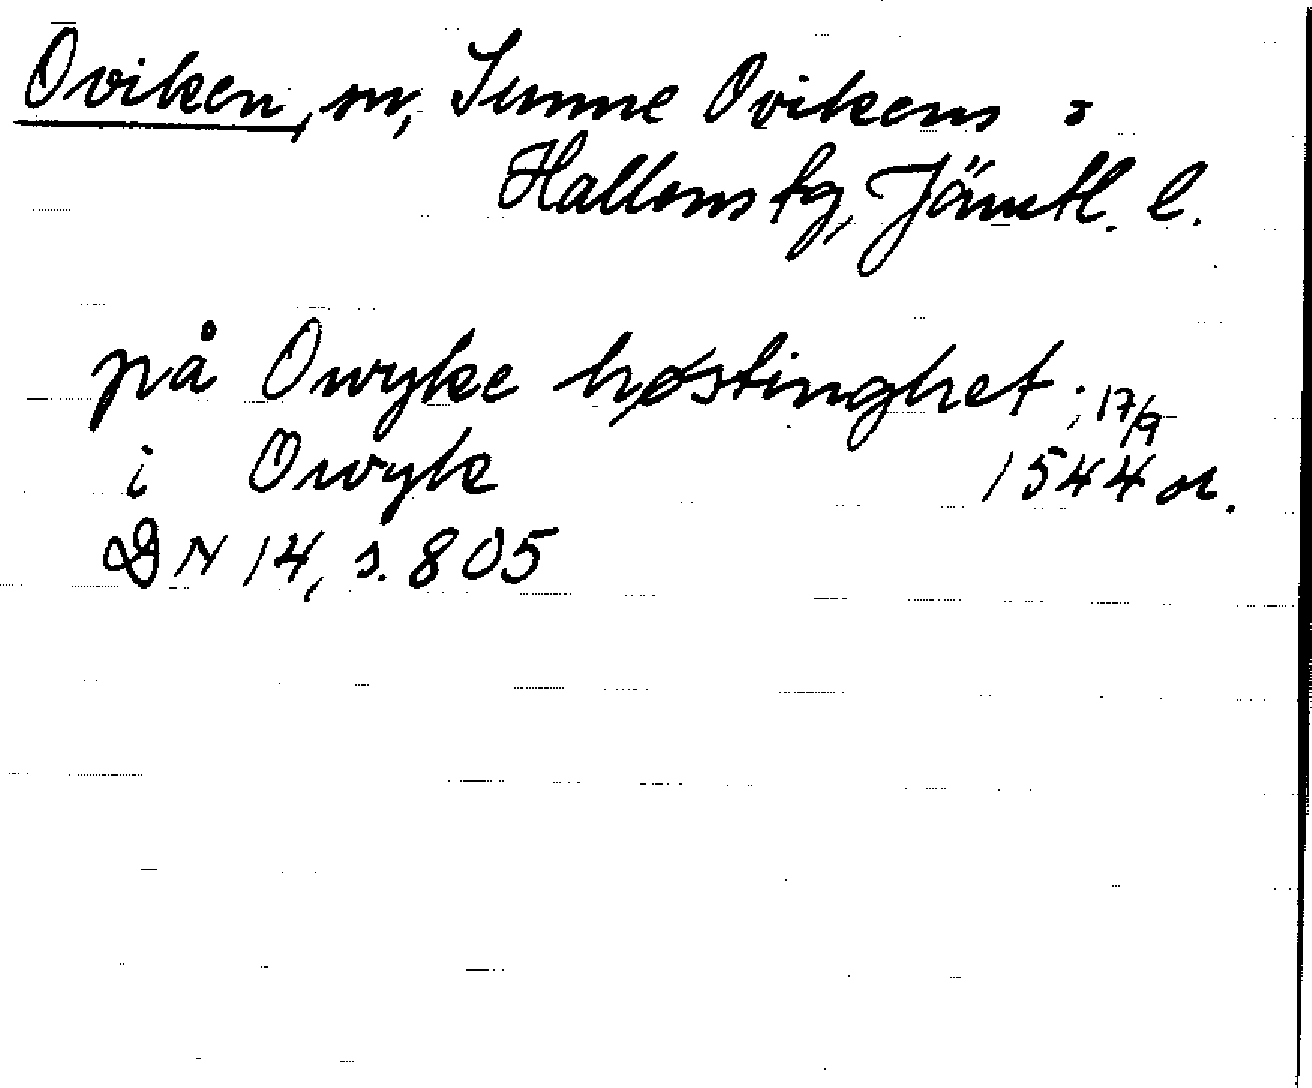 Oviken, sn, Sunne Ovikens o
Hallens tg, Jämtl. l.
på Owyke høstinghet; 17/9
i Owyk 1544 or.
DN 14, s. 805